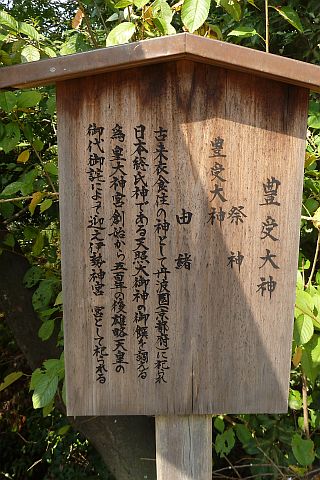 豊受大神
祭神
豊受大神
由緒
古来衣食住の神として丹波國(京都府)に祀られ
日本総氏神である天照大御神の御饌を調える
為皇大神宮創始から五百年の後雄略天皇の
御代御託によって迎え伊勢神宮 宮として祀られる